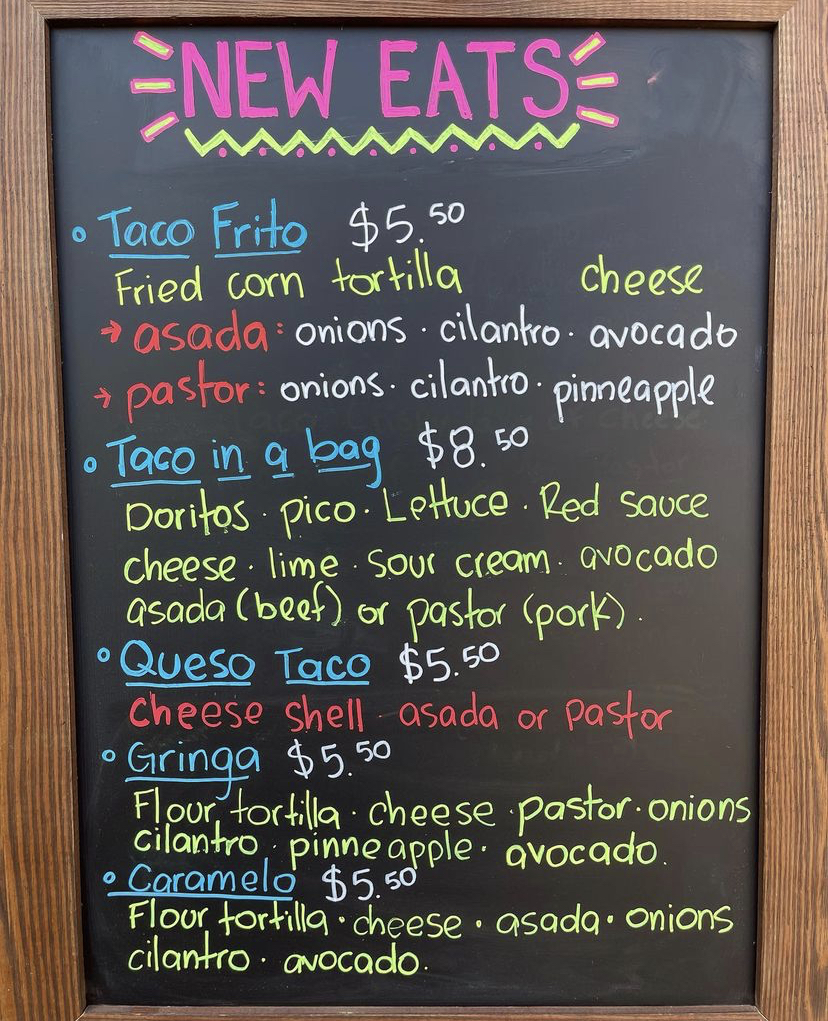 NEW EATS
• Taco Frito $5.50
Fried corn tortilla cheese
→ asada: onions · cilantro · avocado
→ pastor: onions · cilantro · pinneapple
• Taco in a bag $8.50
Doritos · pico · Lettuce · Red sauce
cheese · lime · sour cream · avocado
asada (beef) or pastor (pork) .
• Queso Taco $5.50
cheese shell · asada or pastor
• Gringa $5.50
Flour tortilla · cheese · pastor · onions
cilantro · pinneapple · avocado.
• Caramelo $5.50
Flour tortilla · cheese · asada · onions
cilantro · avocado.